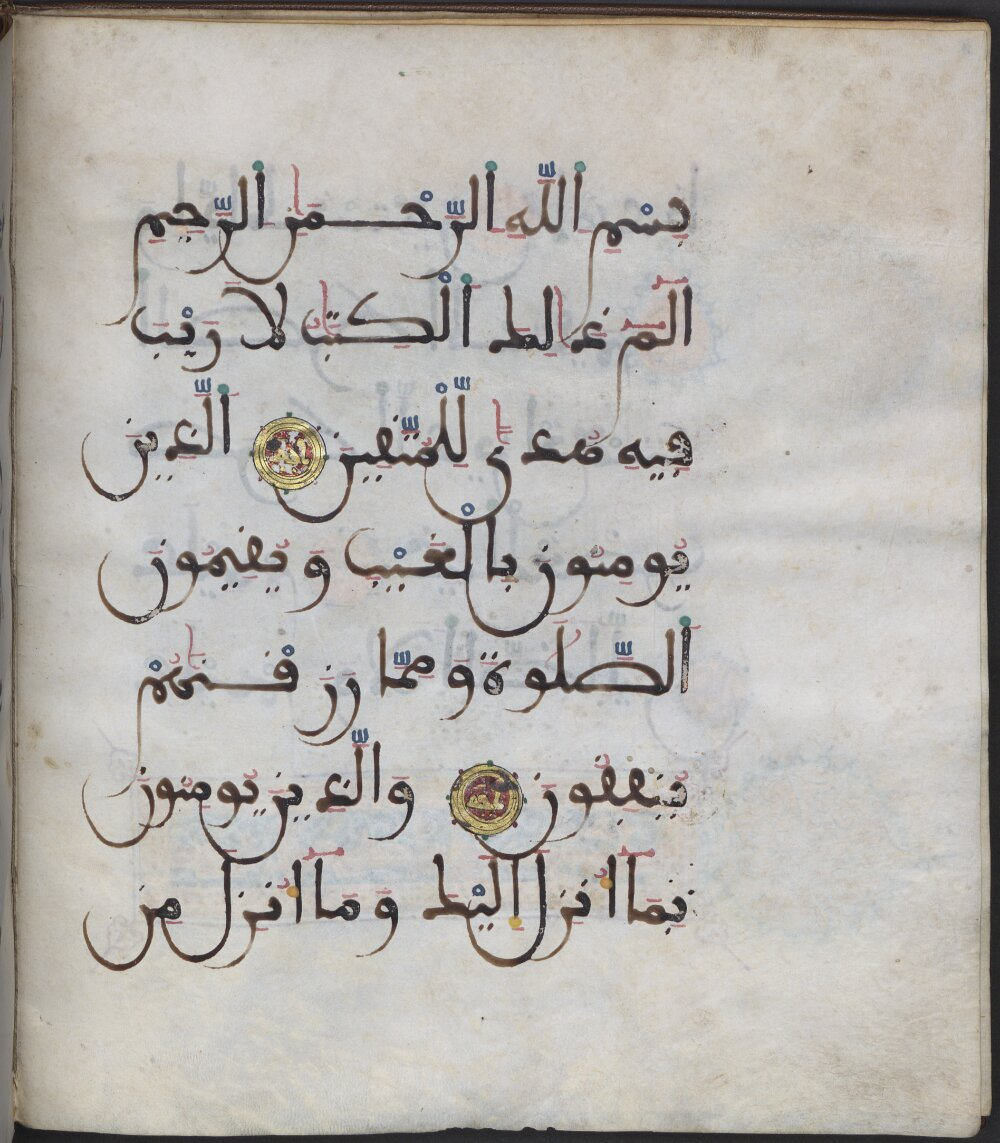 بِسْمِ اللَّهِ الرَّحْمَٰنِ الرَّحِيمِ
الٓمٓ ذَٰلِكَ الْكِتَٰبُ لَا رَيْبَ
فِيهِ هُدًى لِّلْمُتَّقِينَ الَّذِينَ
يُومِنُونَ بِالْغَيْبِ وَيُقِيمُونَ
الصَّلَوٰةَ وَمِمَّا رَزَقْنَٰهُمْ
يُنفِقُونَ وَالَّذِينَ يُومِنُونَ
بِمَآ أُنزِلَ إِلَيْكَ وَمَآ أُنزِلَ مِن